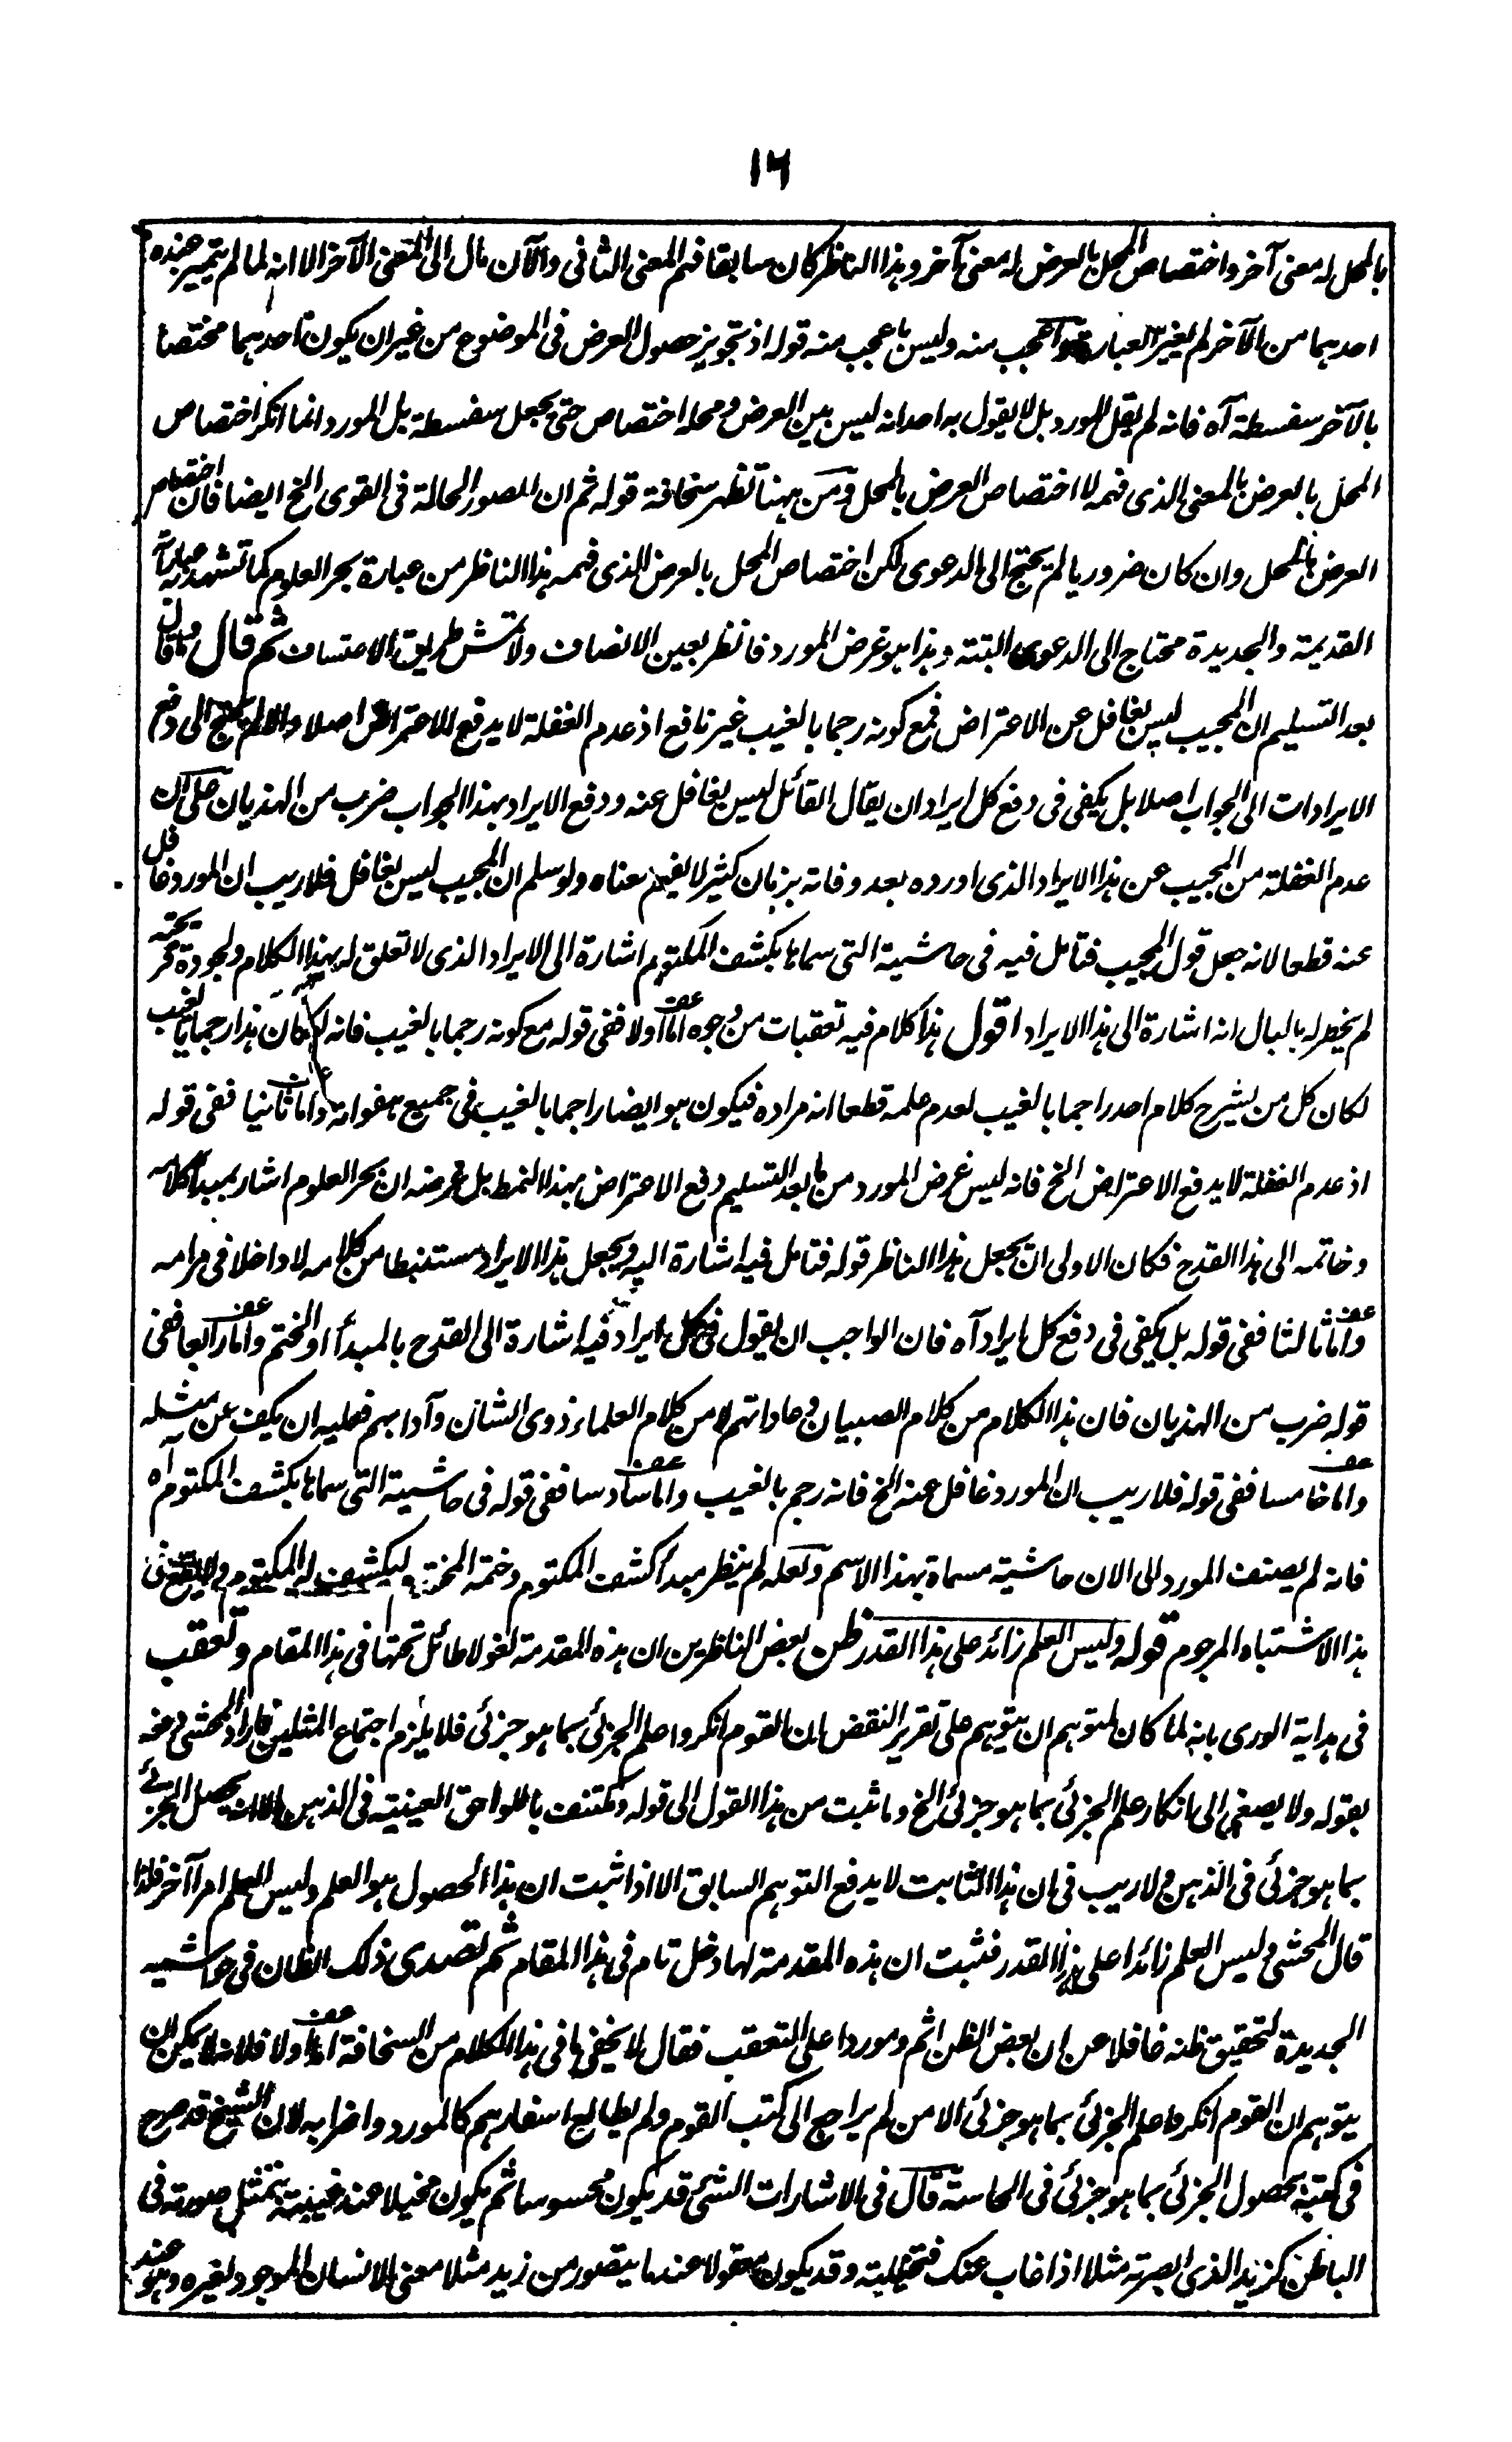 ١٦
بالمحل له معنى آخر واختصاص المحل بالعرض له معنى آخر وهذا الناظر كان سابقا فهم المعنى الثانى والآن مال الى المعنى الآخر الا انه لما لم يتميز عنده
احدهما من الآخر لم يغير العبارة واعجب منه وليس باعجب منه قوله اذ تجويز حصول العرض فى الموضوع من غير ان يكون احدهما مختصا
بالآخر سفسطة آه فانه لم يقل المورد بل لا يقول به احد انه ليس بين العرض ومحله اختصاص حتى يجعل سفسطة بل المورد انما انكر اختصاص
المحل بالعرض بالمعنى الذى فهمه لا اختصاص العرض بالمحل ومن ههنا تظهر سخافة قوله ثم ان الصور الحالة فى القوى الخ ايضا فان اختصاص
العرض بالمحل وان كان ضروريا لم يحتج الى الدعوى لكن اختصاص المحل بالعرض الذى فهمه هذا الناظر من عبارة بحر العلوم كما تشهد به عباراته
القديمة والجديدة محتاج الى الدعوى البتة وهذا هو غرض المورد فانظر بعين الانصاف ولا تمش طريق الاعتساف ثم قال وما قال
بعد التسليم ان المجيب ليس بغافل عن الاعتراض فمع كونه رجما بالغيب غير نافع اذ عدم الغفلة لا يدفع الاعتراض اصلا والا لم يحتج الى دفع
الايرادات الى الجواب اصلا بل يكفى فى دفع كل ايراد ان يقال القائل ليس بغافل عنه ودفع الايراد بهذا الجواب ضرب من الهذيان على ان
عدم الغفلة من المجيب عن هذا الايراد الذى اورده بعد وفاته بزمان كثير لا يفهم معناه ولو سلم ان المجيب ليس بغافل فلا ريب ان المورد غافل
عنه قطعا لانه جعل قول المجيب فتامل فيه فى حاشيته التى سماها بكشف المكتوم اشارة الى الايراد الذى لا تعلق له بهذا الكلام ولجودة قريحته
لم يخطر له بالبال انه اشارة الى هذا الايراد اقول هذا كلام فيه تعقبات من وجوه اما اولا ففى قوله مع كونه رجما بالغيب فانه لو كان هذا رجما بالغيب
لكان كل من يشرح كلام احد راجما بالغيب لعدم علمه قطعا انه مراده فيكون هو ايضا راجما بالغيب فى جميع هفواته واما ثانيا ففى قوله
اذ عدم الغفلة لا يدفع الاعتراض الخ فانه ليس غرض المورد من ما بعد التسليم دفع الاعتراض بهذا النمط بل غرضه ان بحر العلوم اشار بمبدأ كلامه
وخاتمه الى هذا القدح فكان الاولى ان يجعل هذا الناظر قوله فتامل فيه اشارة اليه ويجعل هذا الايراد مستنبطا من كلامه لا داخلا فى مرامه
واما ثالثا ففى قوله بل يكفى فى دفع كل ايراد آه فان الواجب ان يقول فى كل ايراد فيه اشارة الى القدح بالمبدأ او المختم واما رابعا ففى
قوله ضرب من الهذيان فان هذا الكلام من كلام الصبيان وعاداتهم لا من كلام العلماء ذوى الشان وآدابهم فعليه ان يكف عن مثله
واما خامسا ففى قوله فلا ريب ان المورد غافل عنه الخ فانه رجم بالغيب واما سادسا ففى قوله فى حاشيته التى سماها بكشف المكتوم آه
فانه لم يصنف المورد الى الان حاشية مسماة بهذا الاسم ولعله لم ينظر مبدأ كشف المكتوم وختمه المختوم ليكشف له المكتوم
هذا الاشتباه المرجوم قوله وليس العلم زائد على هذا القدر ظن بعض الناظرين ان هذه المقدمة لغو لا طائل تحتها فى هذا المقام وتعقب
فى هداية الورى بانه لما كان لمتوهم ان يتوهم على تقرير النقض بان القوم انكروا علم الجزئى بما هو جزئى فلا يلزم اجتماع المثلين فاراد المحشى دفعه
بقوله ولا يصغى الى انكار علم الجزئى بما هو جزئى الخ وما ثبت من هذا القول الى قوله ومكتنف باللواحق العينية فى الذهن الا انه يحصل الجزئى
بما هو جزئى فى الذهن ولا ريب فى ان هذا الثابت لا يدفع التوهم السابق الا اذا ثبت ان هذا الحصول هو العلم وليس العلم امرا آخر فلذا
قال المحشى وليس العلم زائدا على هذا القدر فثبت ان هذه المقدمة لها دخل تام فى هذا المقام ثم تصدى ذلك الظان فى حواشيه
الجديدة لتحقيق ظنه غافلا عن ان بعض الظن اثم وموردا على التعقب فقال لا يخفى ما فى هذا الكلام من السخافة اما اولا فلانه لا يمكن ان
يتوهم ان القوم انكروا علم الجزئى بما هو جزئى الا من لم يراجع الى كتب القوم ولم يطالع اسفارهم كالمورد واضرابه لان الشيخ قد صرح
فى كتبه بحصول الجزئى بما هو جزئى فى الحاسة قال فى الاشارات الشئ قد يكون محسوسا ثم يكون مخيلا عند غيبته بتمثل صورته فى
الباطن كزيد الذى ابصرته مثلا اذا غاب عنك فتخيلته وقد يكون معقولا عند ما يتصور من زيد مثلا معنى الانسان الموجود لغيره وهو عند